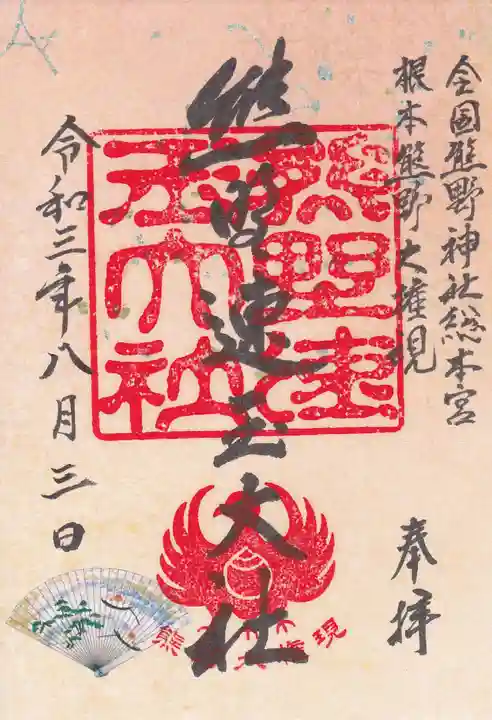 全国熊野神社総本宮
根本熊野大権現
奉拝
熊野速玉大社
熊野速玉大社
令和三年八月三日
熊 大権現